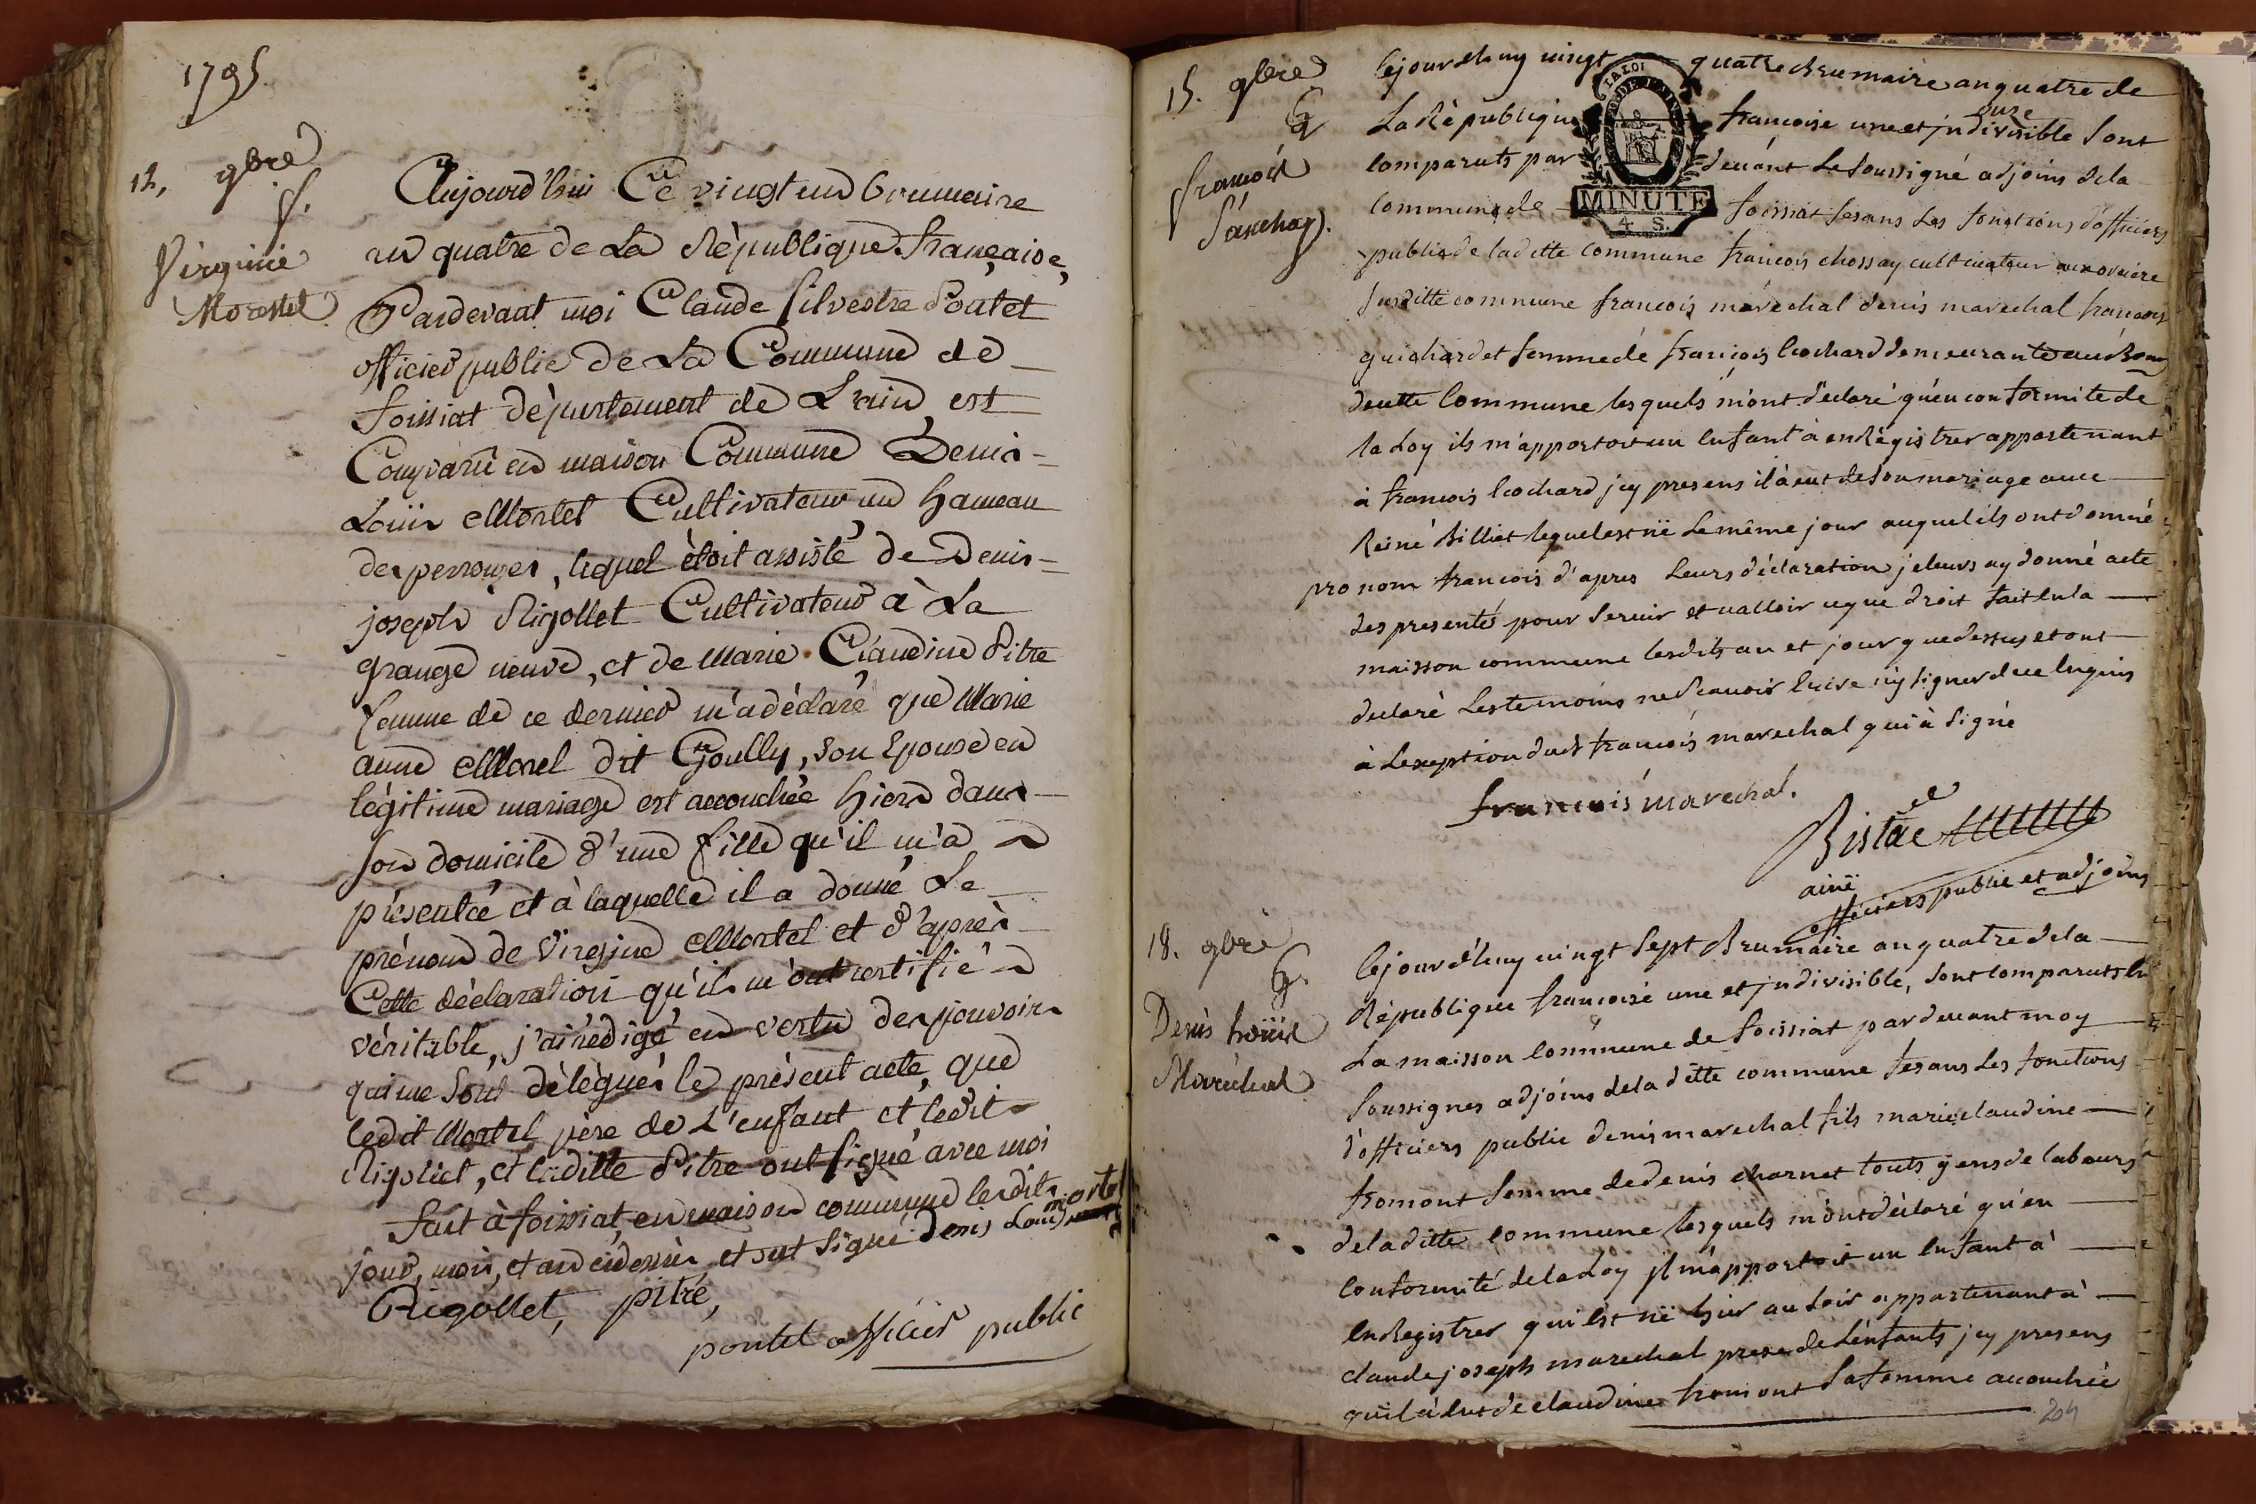 1795
12, 9bre
f.
Virginie
Morestel
Aujourd'hui Ce vingt un brumaire
an quatre de La République française,
Pardevant moi Claude Silvestre Poutet
officier public de La Commune de
foissiat département de L'ain, est
Comparu en maison Commune Denis-
Louis Mortel Cultivateur au hameau
des perrouses, lequel étoit assisté de Denis-
joseph Rigollet Cultivateur à La
grange neuve, et de Marie Claudine Pitre
femme de ce dernier m'a déclaré que Marie
anne Morel dit Goully, son Epouse en
légitime mariage est accouchée hier dans
son domicile d'une fille qu'il m'a
présentée et à laquelle il a donné Le
prénom de Virginie Mortel et d'après
Cette déclaration qu'ils m'ont certifié
véritable, j'ai rédigé en vertu des pouvoirs
qui me sont délégués le présent acte, que
ledit Mortel père de L'enfant et ledit
Rigollet, et ladite Pitre ont signé avec moi
fait à foissiat, en maison commune lesdits
jour, mois, et an cidessus et ont signé Denis Louis mortel
Rigollet, pitre,
poutet officier public
15. 9bre
G
françois
cejourdhuy vingt quatre brumaire an quatre de
La République francoise une et jndivisible sont
onze
comparuts par devant Le soussigné adjoins dela
LA LOI
MINUTE
4 S.
commune de foissiat fesans Les fonctions d'officiers
public de laditte commune francois chossay cultivateur
susditte commune francois maréchal denis marechal francois
guichard et femme de francois cochard demeurante au
de cette commune lesquels m'ont déclaré qu'en conformite de
la Loy ils m'apportoit un Enfant à enRégistrer appartenant
à francois cochard jcy presens il à eut de son mariage avec
Reiné Billiet lequel est né Le même jour auquel ils ont donné
pronom francois d'apres Leurs déclaration je leurs ay donné acte
des presentes pour servir et valloir ce que droit fait en la
maisson commune lesdits an et jour que dessus et ont
declaré Les temoins ne scavoir Ecrire ny signer de ce Enquis
à L'exeption dudt francois marechal qui à signé
francois marechal.
ainé
officiers public et adjoins
18. 9bre
G.
Denis Louis
Maréchal
cejourd'huy vingt sept Brumaire an quatre dela
République francoise une et jndivisible, sont comparuts En
La maisson commune de foissiat par devant moy
soussignes adjoins dela ditte commune fesans Les fonctions
d'officiers public denis marechal fils marie claudine
fromont femme de denis charnet touts gens de labours
dela ditte commune lesquels m'ont déclaré qu'en
conformité dela Loy jl m'apportoit un Enfant à
EnRegistrer qui Est né hier au soir appartenant à
claude joseph marechal pere de L'enfants jcy presens
qu'il à Eut de claudine fromont sa femme accouchée
204